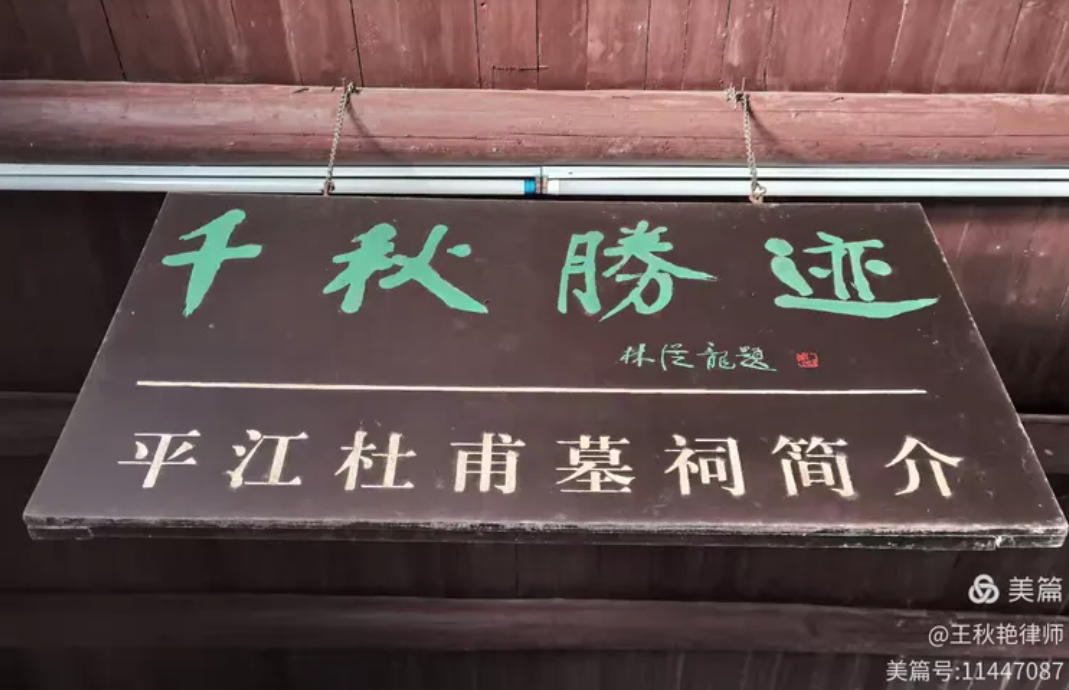 千秋勝迹
林从龍題
平江杜甫墓祠简介
美篇
@王秋艳律师
美篇号:11447087